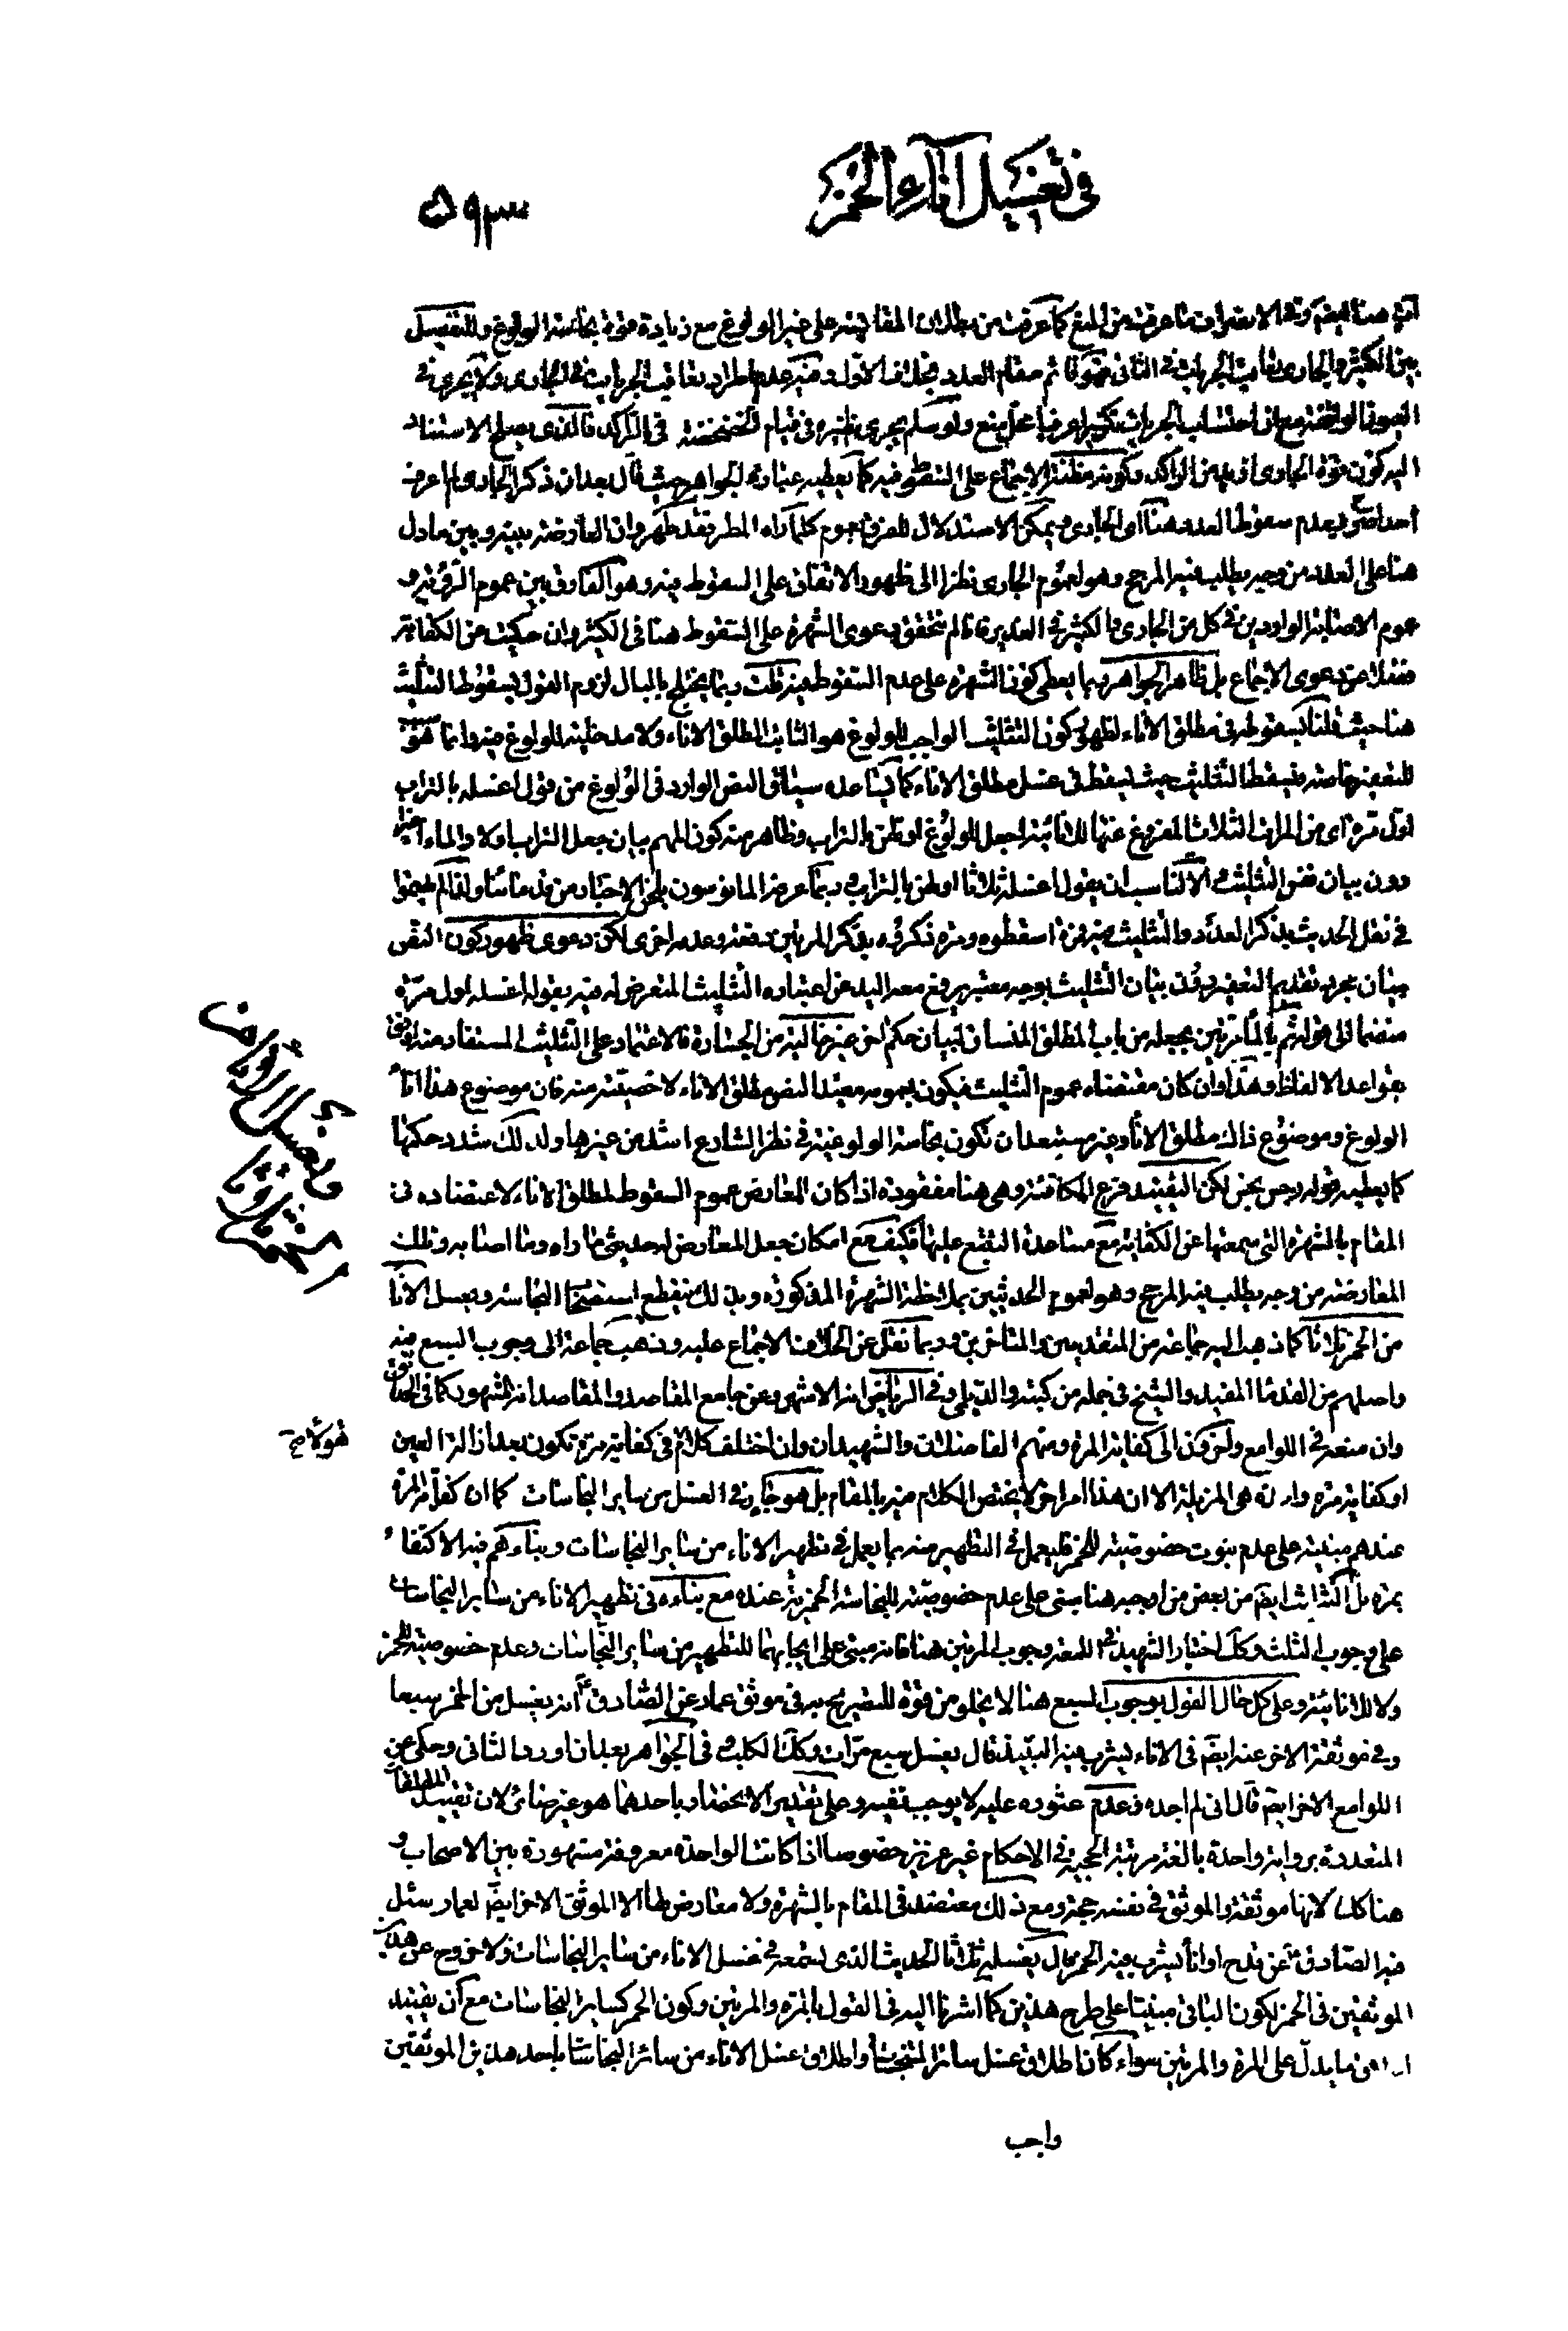 في تغسيل آناء الخمر
۵۹۳
بين الكثير والجاري تعاقب الجريات في الثاني فهو قائم مقام العدد بخلاف الاوّل وفيه عدم اطراد تعاقب الجريات في الجاري ولا يجري في
اليه كون قوة الجاري ازيد من الراكد وكونه مظنة الاجماع على السقوط فيه كما يعطيه عبارة الجواهر حيث قال بعد ان ذكر الجاري لم اعرف
احدا صرّح بعدم سقوط العدد هنا اي الجاري ويمكن الاستدلال للفرق بعموم كلما رآه المطر فقد طهر وان المعارضة بينه وبين ما دل
هنا على العدد من وجه يطلب فيه المرجح وهو لعموم الجاري نظرا الى ظهور الاتفاق على السقوط فيه وهو الفارق بين عموم
عموم الاصابة الواردين في كل من الجاري والكثير في الغدير فما لم يتحقق دعوى الشهرة على السقوط هنا في الكثير وان حكيت عن الكفاية
فضلا عن دعوى الاجماع بل ظاهر الجواهر ربما يعطي كون الشهرة على عدم السقوط فيه قلت ربما يختلج بالبال لزوم القول بسقوط التثليث
هنا حيث قلنا بسقوطه في مطلق الاناء لظهور كون التثليث الواجب للولوغ هو الثابت لمطلق الاناء ولا مدخلية للولوغ فيه وانما هو
للتعفير خاصة فيسقط التثليث حيث يسقط في غسل مطلق الاناء كما يساعده سياق النص الوارد في الولوغ من قوله اغسله بالتراب
اول مرة اي من المرات الثلاث المفروغ عنها للانائية اجعل للولوغ اولهن بالتراب وظاهر منه كون المهم بيان جعل التراب اولا والماء اخيرا
دون بيان نفس التثليث والا لناسب ان يقول اغسله ثلاثا اولهن بالتراب وربما عرفه المانوسون بلحن الاخبار من قدمائنا ولذا لم يلتزموا
في نقل الحديث بذكر العدد والتثليث فيه فمرة اسقطوه ومرة ذكروه بذكر المرتين دفعة وعدمه اخرى لكن دعوى ظهور كون النص
بيان مجرد تقديم التعفير دون بيان التثليث بوجه معتبر يرفع معه اليد عن اعتباره التثليث المتعرض له فيه بقوله اغسله اول مرّة
منضما الى قوله ثم بالماء مرتين بجعله من باب المطلق المنساق لبيان حكم اخر غير خالية من الجسارة فالاعتماد على التثليث المستفاد منه اوفق
بقواعد الالفاظ وهذا وان كان مقتضاه عموم التثليث فيكون بعمومه معيدا لنص مطلق الاناء لاخصيته منه فان موضوع هذا اناء
الولوغ وموضوع ذاك مطلق الاناء وغير مستبعد ان تكون نجاسة الولوغية في نظر الشارع اشد من غيرها ولذلك شدد حكمها
كما يعطيه قوله رجس نجس لكن التقييد فرع المكافئة وهي هنا مفقودة اذا كان المعارض عموم السقوط لمطلق الاناء لاعتضاده في
المقام بالشهرة التي سمعتها عن الكفاية مع مساعدة التتبع عليها فكيف مع امكان جعل المعارض له حديثي ما راه وما اصابه وتلك
المعارضة من وجه يطلب فيه المرجح وهو لعموم الحديثين بملاحظة الشهرة المذكورة وبذلك ينقطع استصحاب النجاسة ويغسل الاناء
من الخمر ثلاثا كما ذهب اليه جماعة من المتقدمين والمتاخرين وربما نقل عن الخلاف الاجماع عليه وذهب جماعة الى وجوب السبع فيه
واصلهم من القدماء المفيد والشيخ في جملة من كتبه والديلمي وفي الرياض انه الاشهر وعن جامع المقاصد والمقاصد انه المشهور كما في الحدائق
وان منعه في اللوامع واخرون الى كفاية المرة ومنهم الفاضلان والشهيدان وان اختلف كلامهم في كفاية مرة تكون بعد ازالة العين
او كفاية مرة وان هي المزيلة الا ان هذا امر اخر لا يختص الكلام فيه بالمقام بل هو جار في الغسل من ساير النجاسات كما ان كفاية المرة
عندهم مبنية على عدم ثبوت خصوصية للخمر فليعمل في التطهير منه بما يعمل في تطهير الاناء من ساير النجاسات وبناءهم فيه الاكتفاء
بمرة بل الثلاث ايضا من بعض من اوجبه هنا مبنى على عدم خصوصية للنجاسة الخمرية عنده مع بناءه في تطهير الاناء من ساير النجاسات
على وجوب الثلث وكك اختيار الشهيد في اللمعة وجوب المرتين هنا فانه مبنى على ايجابهما للتطهير من ساير النجاسات وعدم خصوصية للخمر
ولا للانائية وعلى كل حال القول بوجوب السبع هنا لا يخلو من قوة للتصريح به في موثق عمار عن الصادق ع انه يغسل من الخمر سبعا
وفي موثقه الاخر عنه ايضا في الاناء يشرب فيه النبيذ قال يغسل سبع مرات وكك الكلب وفي الجواهر بعد ان اورد الثاني وحكى عن
اللوامع الاخر ايضا قال اني لم اجده وعدم عثوره عليه لا يوجب نفيه وعلى تقدير الانحصار باحدهما هو غير ضائر لان تقييد المطلقات
المتعددة برواية واحدة بالغة مرتبة الحجية في الاحكام غير عزيز خصوصا اذا كانت الواحدة معروفة مشهورة بين الاصحاب و
هنا كذلك لانها موثقة والموثق في نفسه حجة ومع ذلك معتضد في المقام بالشهرة ولا معارض لها الا الموثق الاخر ايضا لعمار سئل
فيه الصادق ع عن قدح او اناء يشرب فيه الخمر قال يغسله ثلاثا الحديث الذي نتبعه في غسل الاناء من ساير النجاسات ولا خروج عن هذين
الموثقين في الخمر لكون الباقي مبنيا على طرح هذين كما اشرنا اليه في القول بالمرة والمرتين وكون الخمر كساير النجاسات مع ان تقييد
ما يدلّ على المرة والمرتين سواء كان اطلاق غسل سائر المتنجسات او اطلاق غسل الاناء من سائر النجاسات باحد هذين الموثقين
واجب
ويغسل الاواني من
الخمر ثلاثا